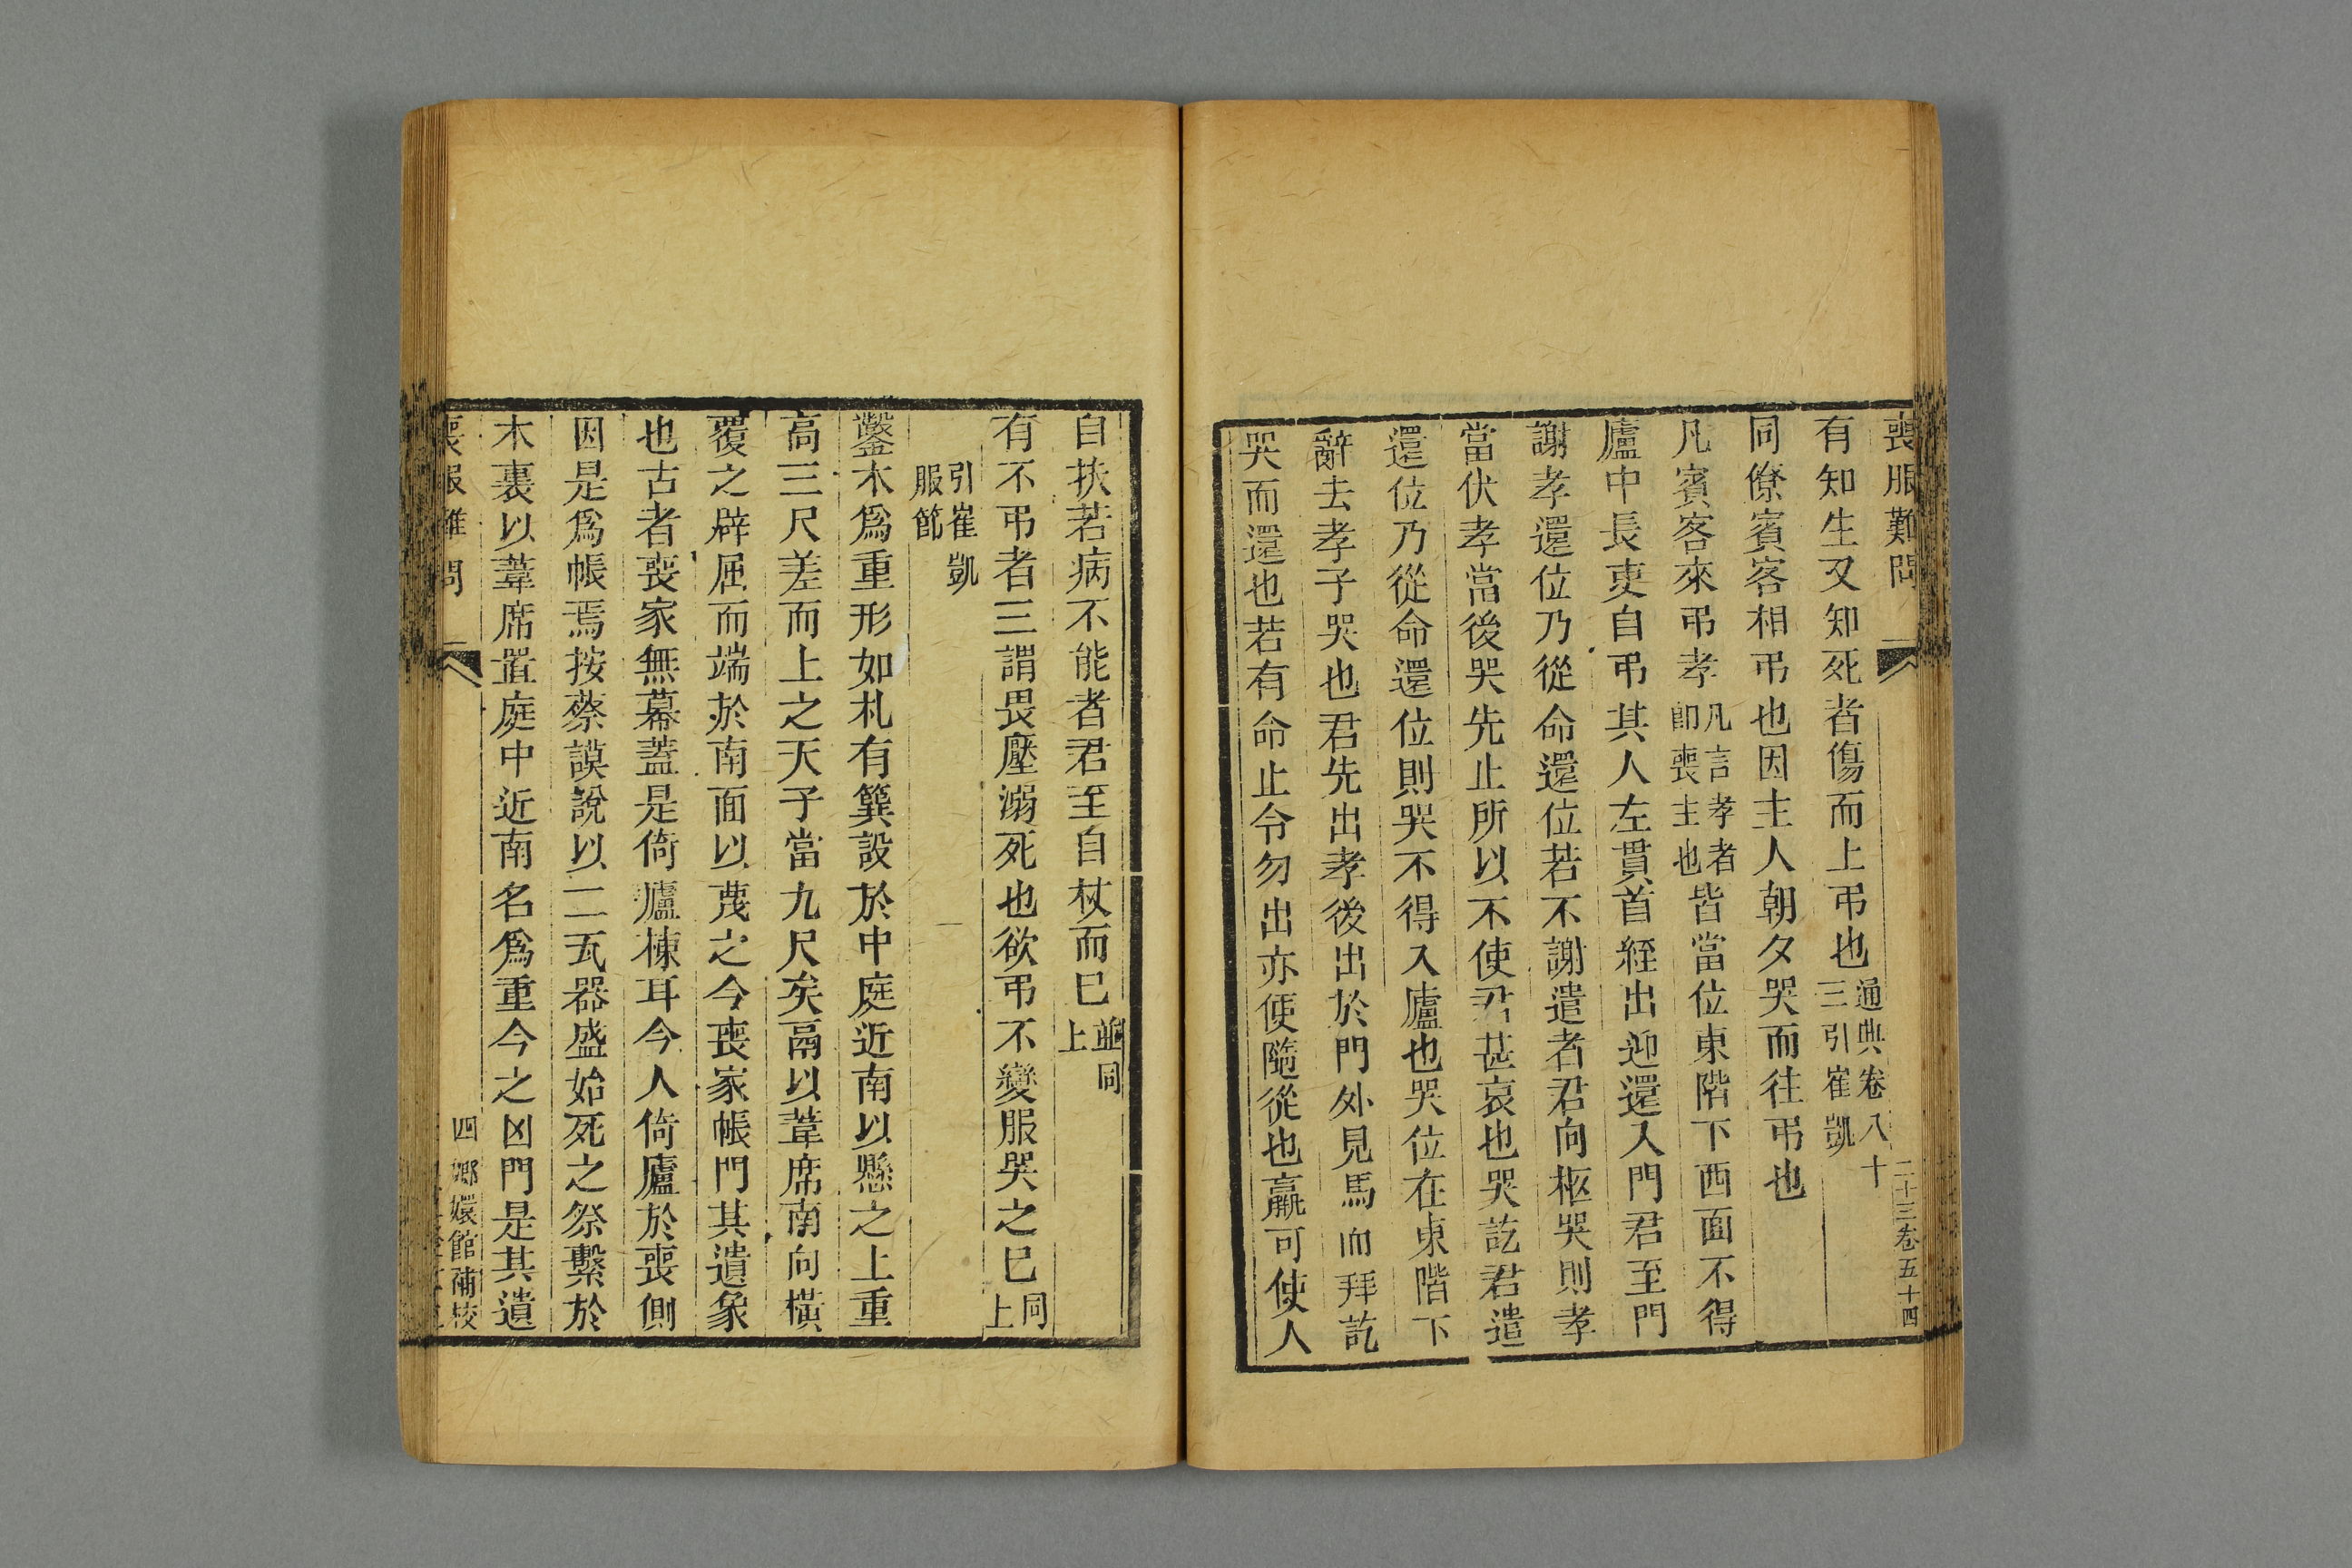 喪服難問
二十三卷五十四
有知生又知死者傷而上弔也通典卷八十三引崔凱
同僚賓客相弔也因主人朝夕哭而往弔也
凡賓客來弔孝凡言孝者卽喪主也皆當位東階下西面不得
廬中長吏自弔其人左貫首絰出迎還入門君至門
謝孝還位乃從命還位若不謝遣者君向柩哭則孝
當伏孝當後哭先止所以不使君甚哀也哭訖君遣
還位乃從命還位則哭不得入廬也哭位在東階下
辭去孝子哭也君先出孝後出於門外見馬而拜訖
哭而還也若有命止令勿出亦便隨從也羸可使人
自扶若病不能者君至自杖而已並同上
有不弔者三謂畏壓溺死也欲弔不變服哭之已同上
引崔凱服節
鑿木爲重形如札有簨設於中庭近南以懸之上重
高三尺差而上之天子當九尺矣鬲以葦席南向橫
覆之辟屈而端於南面以蔑之今喪家帳門其遺象
也古者喪家無幕蓋是倚廬棟耳今人倚廬於喪側
因是爲帳焉按蔡謨說以二瓦器盛始死之祭繫於
木裏以葦席置庭中近南名爲重今之凶門是其遺
喪服難問
四
嫏嬛館補校